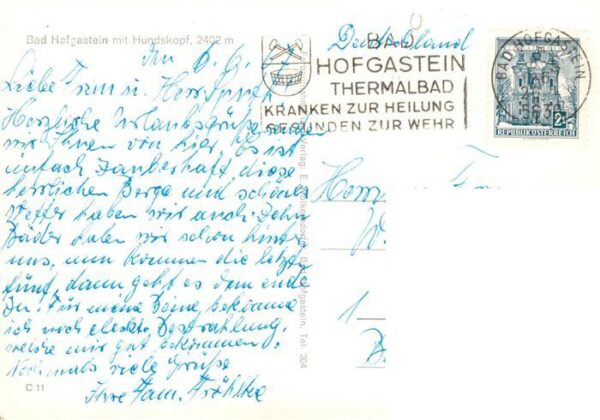 Bad Hofgastein mit Hundskopf, 2402 m
Deutschland
BAD
HOFGASTEIN
THERMALBAD
KRANKEN ZUR HEILUNG
GESUNDEN ZUR WEHR
BAD HOFGASTEIN
5630
2 S
REPUBLIK ÖSTERREICH
Den 6. 6.
Liebe Frau u. Herr
Herzliche Urlaubsgrüße senden
wir Ihnen von hier. Es ist
einfach zauberhaft, diese
herrlichen Berge und schönes
Wetter haben wir auch. Zehn
Bäder haben wir schon hinter
uns, nun kommen die letzten
fünf, dann geht es dem Ende
zu. Für meine Beine bekomme
ich noch elektr. Bestrahlung,
welche mir gut bekommen.
Nochmals viele Grüße
Ihre Fam. Fröhlke
C 11
Verlag: Bad Hofgastein, Tel. 304